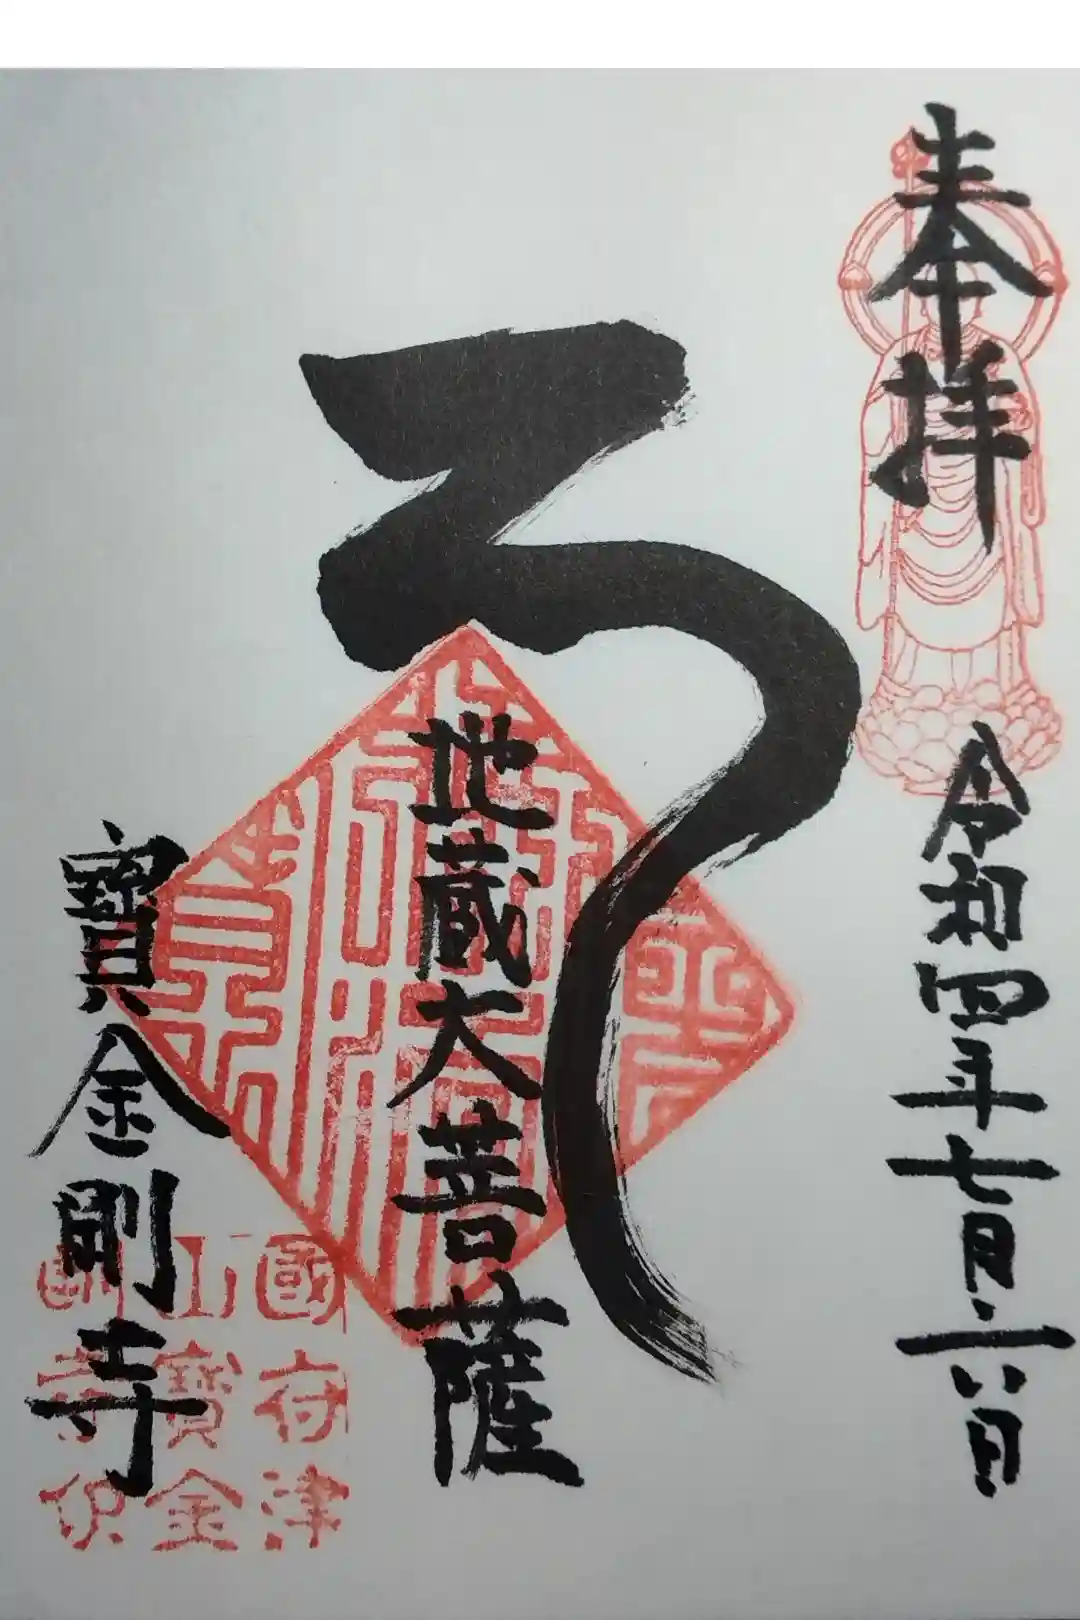 奉拝
令和四年七月六日
𑖮
地蔵大菩薩
寶金剛寺
國府津
山寶金
剛寺印